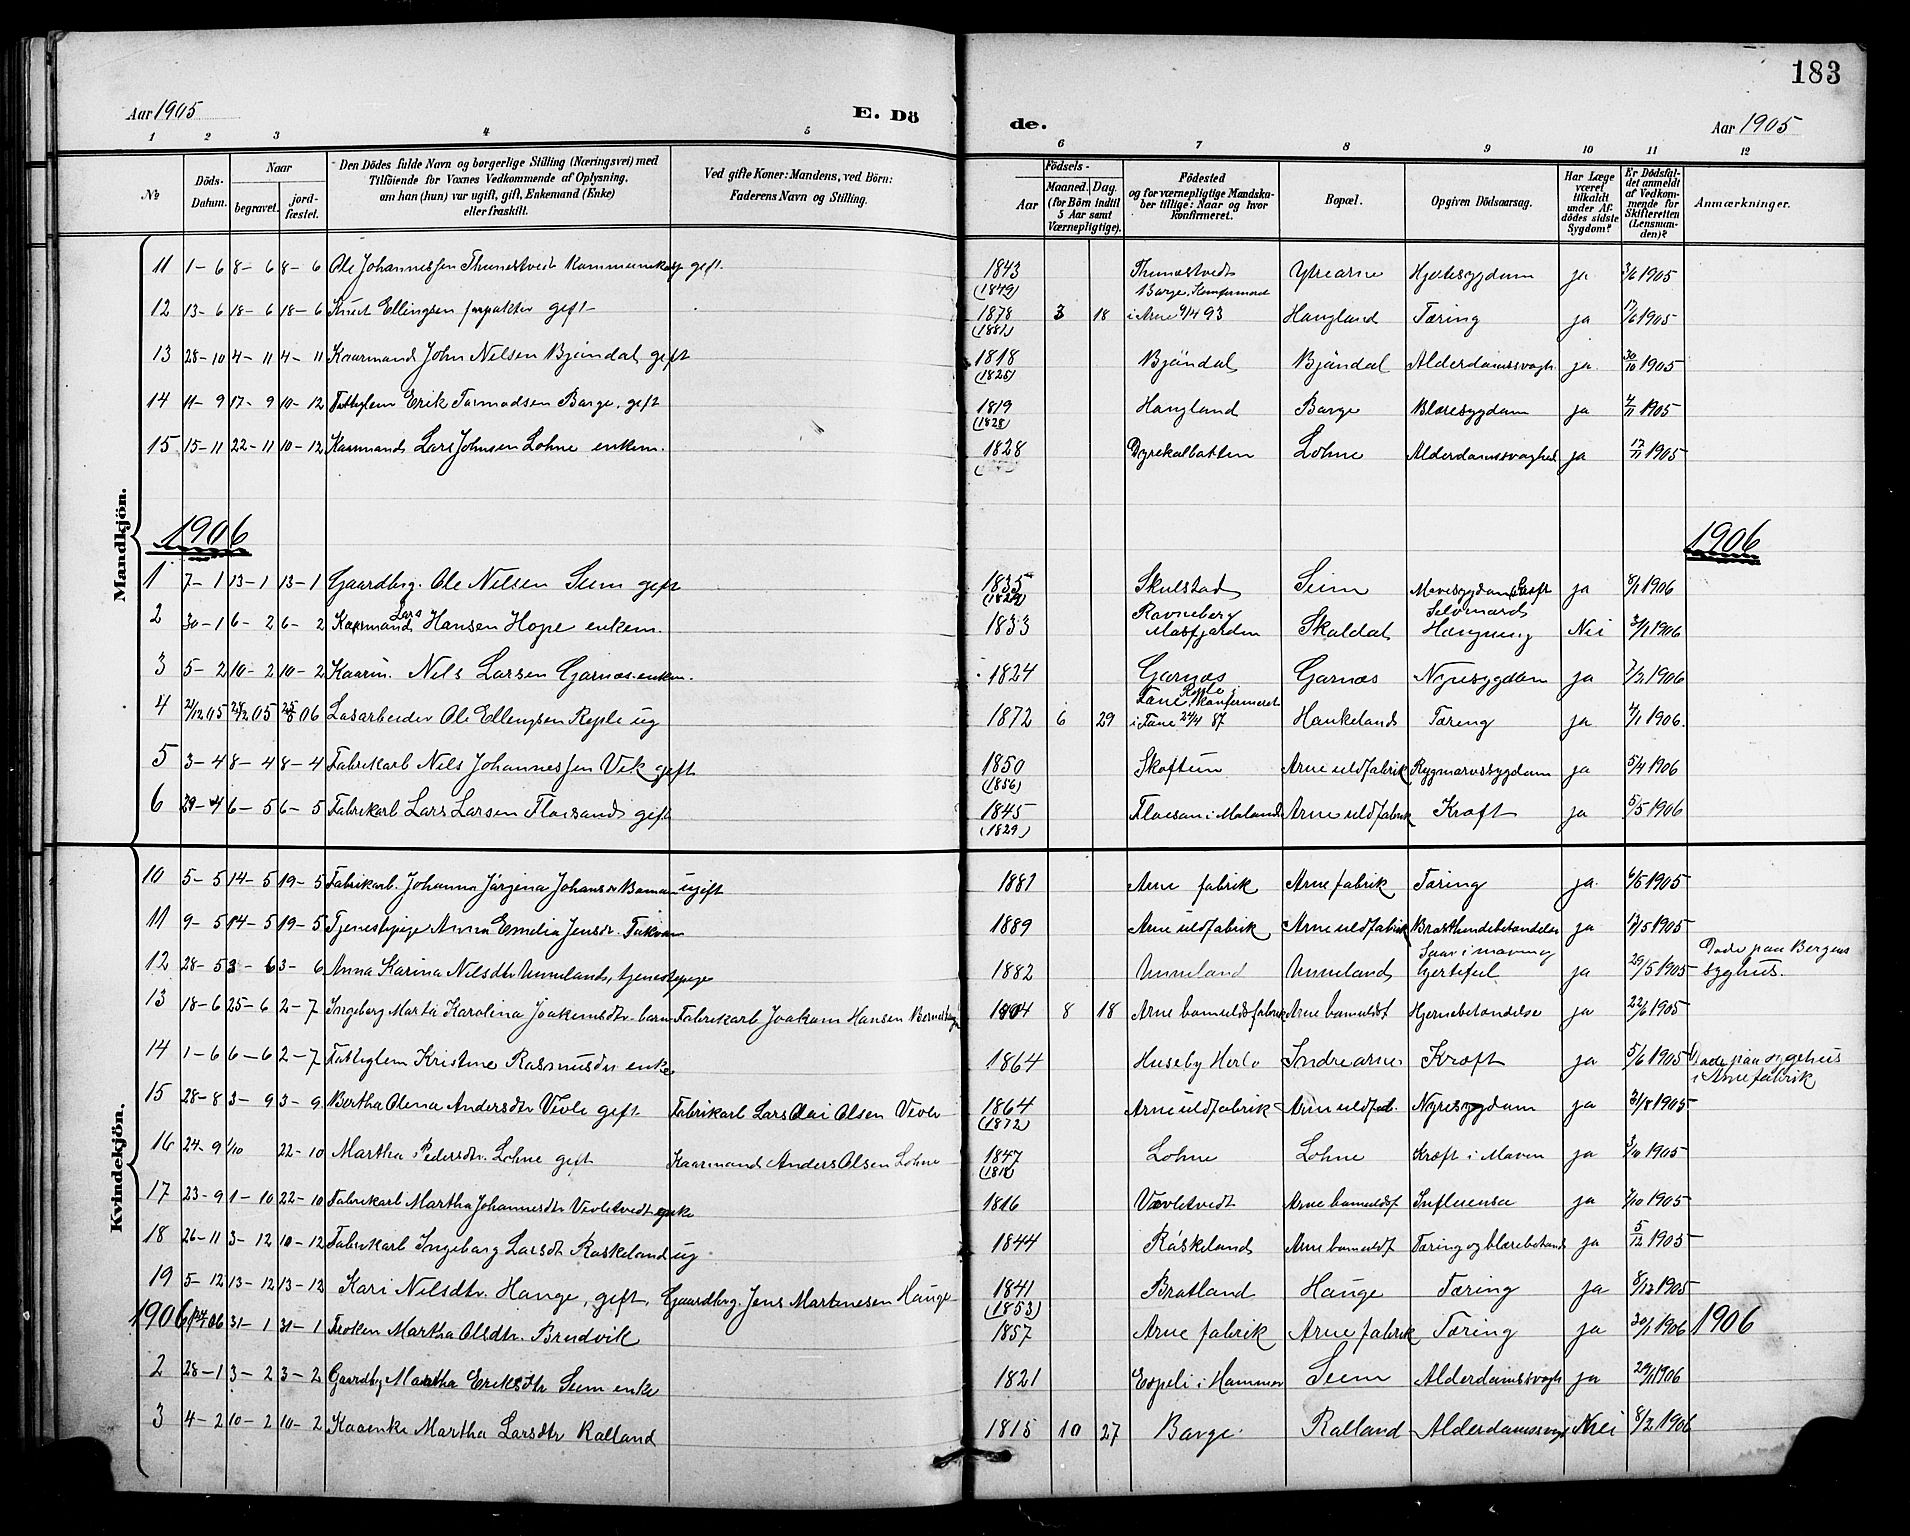 183
Aar 1905 E. Dö de. Aar 1905
1 2 3 4 5 6 7 8 9 10 11 12
No
Döds-Datum.
Naar
begravet.
jordfæstet.
Den Dödes fulde Navn og borgerlige Stilling (Næringsvei) med
Tilföiende for Voxnes Vedkommende af Oplysning,
om han (hun) var ugift, gift, Enkemand (Enke)
eller fraskilt.
Ved gifte Koner: Mandens, ved Börn:
Faderens Navn og Stilling.
Födsels-
Aar
Maaned. Dag.
(for Börn indtil
5 Aar samt
Værnepligtige).
Födested
og for værnepligtige Mandska-
ber tillige: Naar og hvor
konfirmeret.
Bopæl.
Opgiven Dödsaarsag.
Har Læge
været
tilkaldt
under Af-
dödes sidste
Sygdom?
Er Dödsfal-
det anmeldt
af Vedkom-
mende for
Skifteretten
(Lensman-
den)?
Anmærkninger.
Mandkjön.
11 1-6 8-6 8-6 Ole Johannessen Thunestvedt gift 1843 (1849) Thunestvedt Ytrearne Hjertesygdom ja 3/6 1905
12 13-6 18-6 18-6 Knut Ellingsen forpakter gift 1878 (1881) 3 18 Borge, Konfirmeret i Arne 9/4 93 Haugland Tæring ja 17/6 1905
13 28-10 4-11 4-11 Kaarmand John Nilsen Bjöndal gift 1818 (1825) Bjöndal Bjöndal Alderdomssvagh. ja 30/10 1905
14 11-9 17-9 10-12 Fattiglem Erik Tormodsen Borge, gift 1819 (1828) Haugland Borge Blæresygdom ja 4/11 1905
15 15-11 22-11 10-12 Kaarmand Lars Johnsen Lohne enkem. 1828 Dyrekolbotten Lohne Alderdomssvaghed ja 17/11 1905
1906 1906
1 7-1 13-1 13-1 Gaardbrg. Ole Nilsen Seim gift 1835 (1829) Skulstad Seim Mavesygdom, Kræft ja 8/1 1906
2 30-1 6-2 6-2 Kaarmand Lars Hansen Hope enkem. 1833 Ravneberg Masfjorden Skaldal Selvmord Hængning Nei 3/1 1906
3 5-2 10-2 10-2 Kaarm. Nils Larsen Garnæs enkem. 1824 Garnæs Garnæs Nyresygdom ja 7/2 1906
4 21/12 05 28/12 05 06 Løsarbeider Ole Ellingsen Reple ug 1872 6 29 Reple i Fane, Konfirmeret i Fane 24/4 87 Haukeland Tæring ja 4/1 1906.
5 3-4 8-4 8-4 Fabrikarb Nils Johannessen Vik gift 1850 (1856) Skoftun Arne uldfabrik Rygmarvssygdom ja 5/4 1906
6 29-4 6-5 6-5 Fabrikarb Lars Larsen Floesand gift 1845 (1829) Floesan i Meland Arne uldfabrik Kræft ja 5/5 1906
Kvindekjön.
10 5-5 14-5 19-5 Fabrikarb. Johanna Jörgina Johansdr ugift 1881 Arne fabrik Arne fabrik Tæring ja. 6/5 1905
11 9-5 14-5 19-5 Tjenestepige Anna Emelia Jensdr. Takvam 1889 Arne uldfabrik Arne uldfabrik Brysthindebetændelse ja 12/5 1905
12 28-5 3-6 3-6 Anna Karina Nilsdtr Unneland, tjenestepige 1882 Unneland Unneland Saar i maven og hjertefeil ja 29/5 1905 Döde paa Bergens syghus.
13 18-6 25-6 2-7 Ingeborg Marta Karolina Joakimsdtr. barn Fabrikarb Joakim Hansen 1904 8 18 Arne bomuldsfabrik Arne bomuldsf Hjernebetændelse ja 22/6 1905
14 1-6 6-6 2-7 Fattiglem Kristine Rasmusdtr enke 1864 Huseby Herlö Indrearne Kræft ja 5/6 1905 Döde paa sygehus i Arne fabrik
15 28-8 3-9 3-9 Bertha Olena Andersdtr Vevle gift Fabrikarb Lars Olai Olsen Vevle 1864 (1872) Arne uldfabrik Arne uldfab. Nyresygdom ja 31/8 1905
16 24-9 1/10 22-10 Martha Pedersdtr. Lohne gift Kaarmand Anders Olsen Lohne 1847 (1818) Lohne Lohne Kræft i Maven ja 3/10 1905
17 23-9 1-10 22-10 Fabrikarb Martha Johannesdtr Vevletvedt enke 1816 Vævletvedt Arne bomuldsf Influensa ja 7/10 1905
18 26-11 3-12 10-12 Fabrikarb Ingeborg Larsdt Röskeland ug 1844 Röskeland Arne bomuldsf Tæring og blærebetænd ja 5/12 1905
19 5-12 13-12 13-12 Kari Nilsdtr. Hauge, gift, Gaardbrg. Jens Martinesen Hauge 1841 (1853) Bratland Hauge Tæring ja 8/12 1905
1906 31-1 31-1 Fröken Martha Olsdtr. Brudvik 1857 Arne fabrik Arne fabrik Tæring ja 30/1 1906 1906
2 28-1 3-2 3-2 Gaardbg Martha Eriksdtr Seim enke 1821 Espeli i Hammer Seim Alderdomssvagh ja 29/1 1906
3 4-2 10-2 10-2 Kaarenke Martha Larsdtr Ralland 1815 10 27 Borge. Ralland Alderdomssvagh Nei 8/2 1906